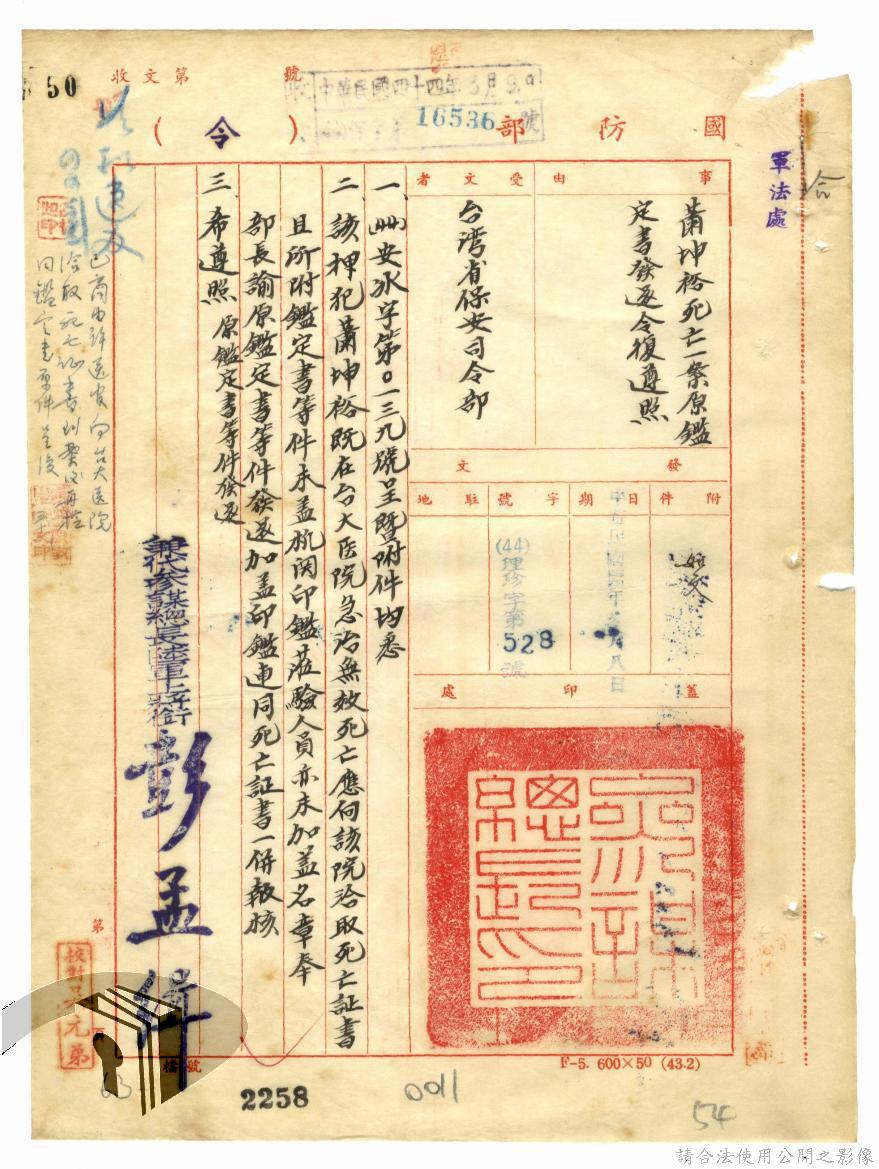 50
收文第 號
中華民國四十四年3月9日
16536 號
國防部
(令)
軍法處
事由
蕭坤裕死亡一案原鑑
定書發還令復遵照
受文者
台湾省保安司令部
發文
附件
如文
日期
中華民國四四年 月八日
字號
(44)
理珍字第
528
號
駐地
蓋印處
參謀總長印
一、 安氷字第0一三九號呈暨附件均悉
二、該押犯蕭坤裕既在台大医院急治無效死亡應向該院洽取死亡証書
且所附鑑定書等件未盖机関印鑑蒞驗人員亦未加盖名章奉
部長諭原鑑定書等件發還加盖印鑑連同死亡証書一併報核
三、希遵照 原鑑定書等件發還
兼代參謀總長陸軍上將銜
彭孟緝
已商由許医官向台大医院
洽取死亡証書
同鑑定書原件呈復
第
檔號
校對吳元弟
F-5. 600×50 (43.2)
2258
0011
54
63
請合法使用公開之影像